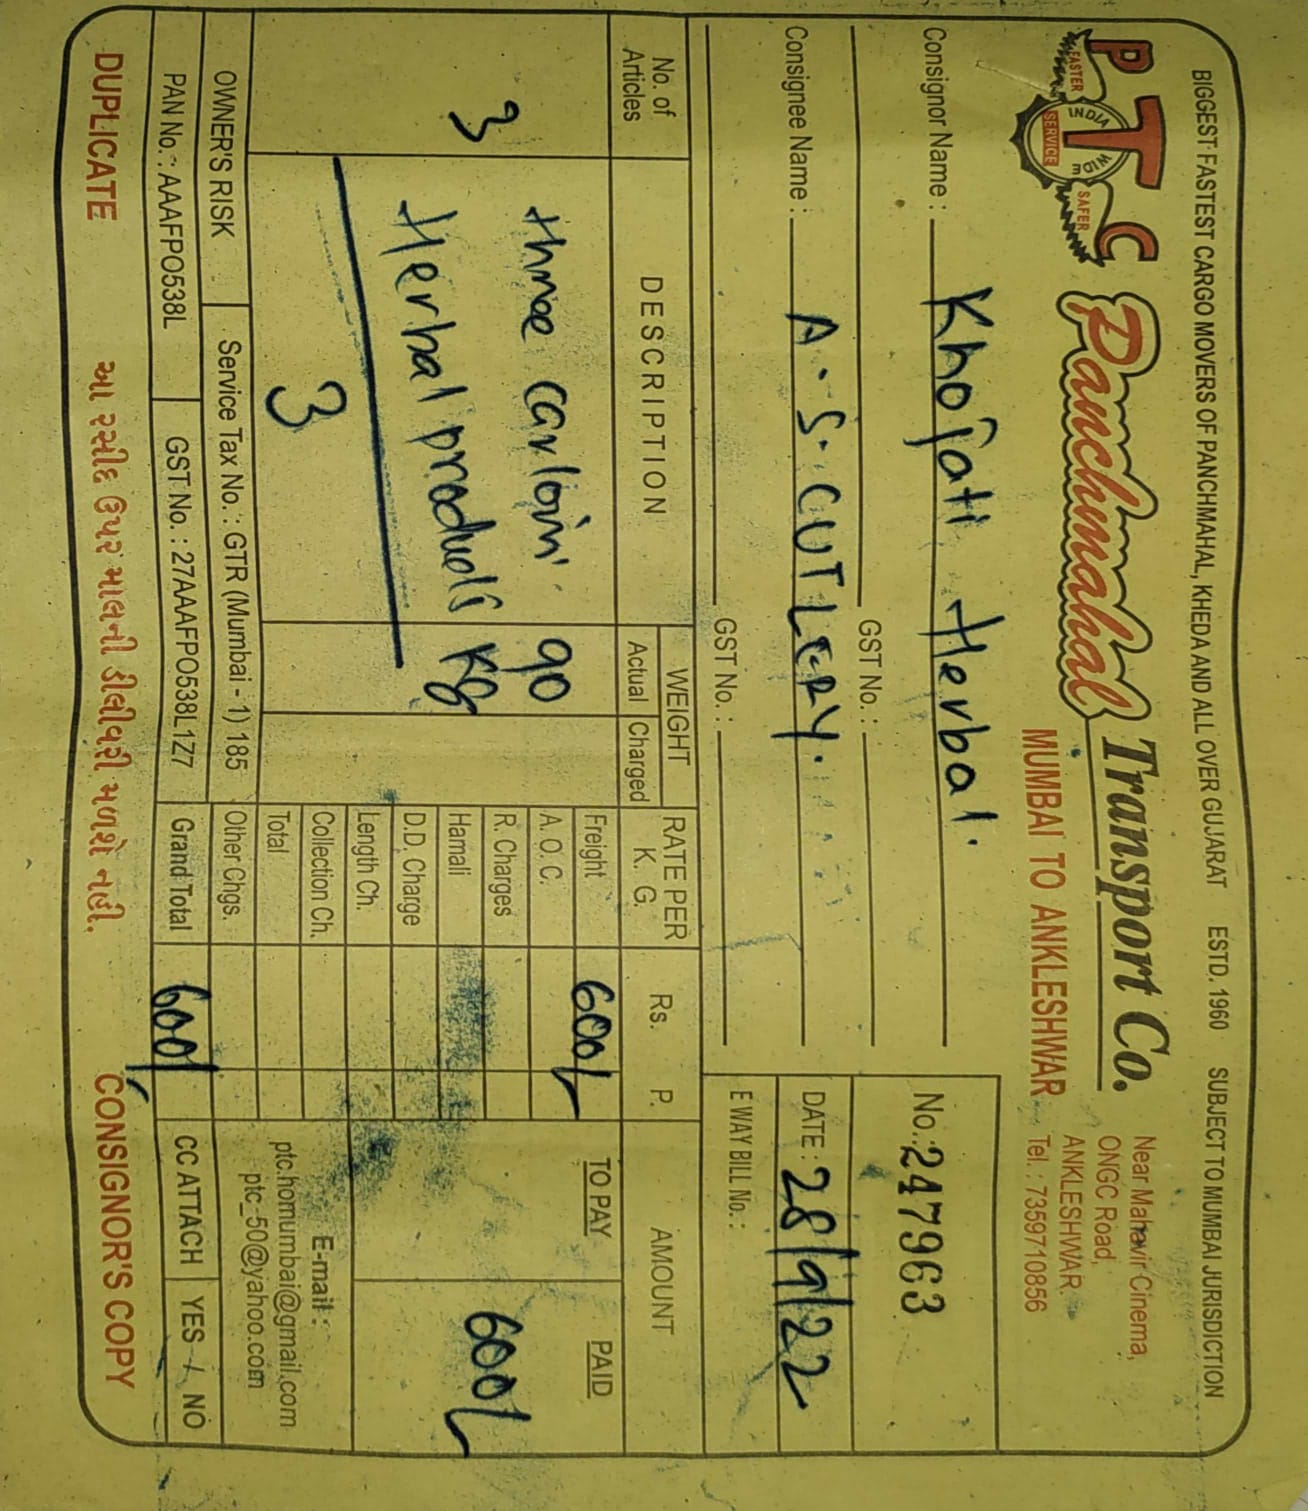 BIGGEST FASTEST CARGO MOVERS OF PANCHMAHAL, KHEDA AND ALL OVER GUJARAT ESTD. 1960 SUBJECT TO MUMBAI JURISDICTION
PTC
FASTER INDIA WIDE SAFER
SERVICE
Panchmahal Transport Co.
MUMBAI TO ANKLESHWAR
Near Mahavir Cinema,
ONGC Road,
ANKLESHWAR.
Tel. : 7359710856
Consignor Name : Khojati Herbal.
GST No. :
Consignee Name : A.S. CUTLERY.
GST No. :
No.: 247963
DATE : 28/9/22
E WAY BILL No. :
No. of Articles DESCRIPTION WEIGHT Actual Charged RATE PER K. G. Rs. P. AMOUNT
TO PAY PAID
3 three carton 90
Herbal products Kg
3
Freight 600/-
A. O. C.
R. Charges
Hamali
D.D. Charge
Length Ch.
Collection Ch.
Total
Other Chgs.
Grand Total 600/-
600/-
E-mail :
ptc.homumbai@gmail.com
ptc_50@yahoo.com
OWNER'S RISK Service Tax No. : GTR (Mumbai - 1) 185
PAN No. : AAAFPO538L GST No. : 27AAAFPO538L1Z7
CC ATTACH YES / NO
DUPLICATE આ રસીદ ઉપર માલની ડીલીવરી મળશે નહી. CONSIGNOR'S COPY